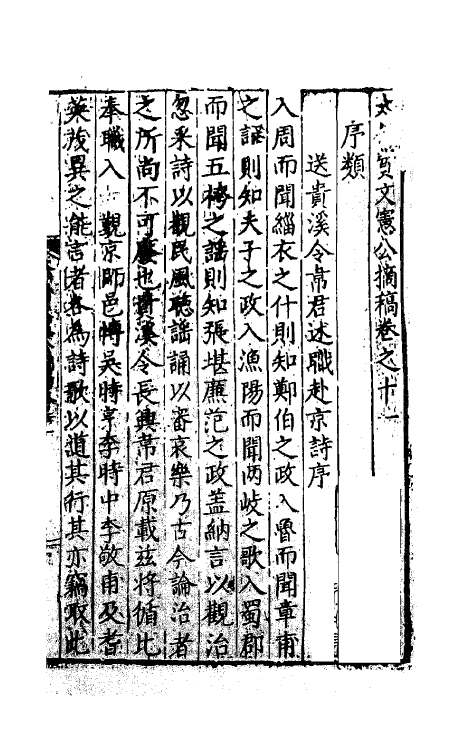 太 文憲公摘稿卷之十一
序類
送貴溪令常君述職赴京詩序
入周而聞緇衣之什則知鄭伯之政入魯而聞章甫
之謡則知夫子之政入漁陽而聞兩岐之歌入蜀郡
而聞五袴之謡則知張堪㢘范之政盖納言以觀治
忽采詩以觀民風聽謡誦以審哀樂乃古今論治者
之所尚不可廢也貴溪令長興常君原載兹將循比
奉職入 覲京師邑博吳時亨李時中李敬甫及耆
英旄異之能言者各為詩歌以道其行其亦竊取此